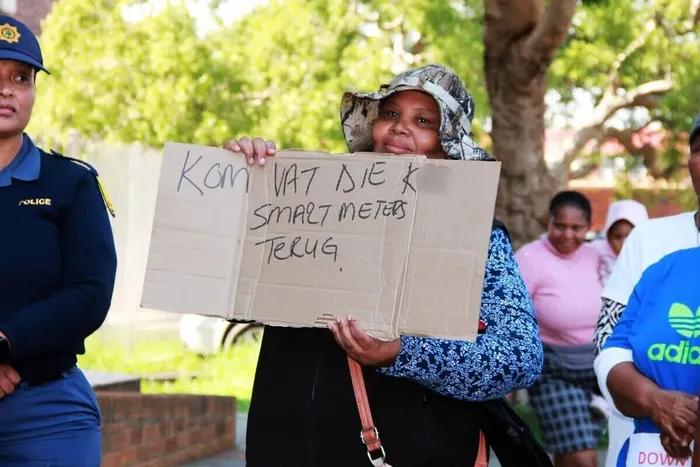 POLICE
KOM VAT DIE K
SMART METERS
TERUG.
adidas
DOWN